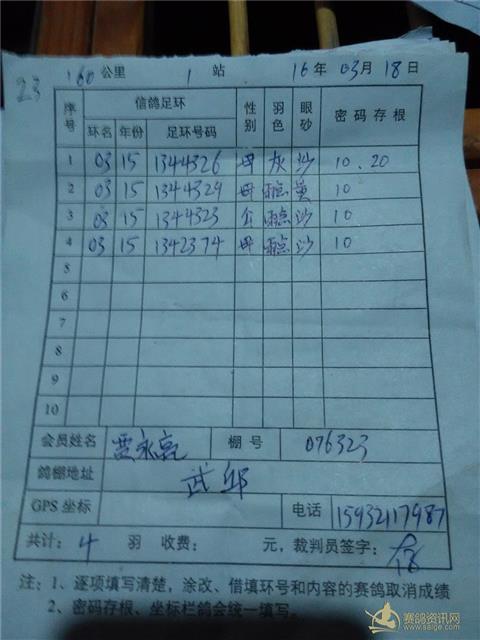 23
160 公里 1 站 16 年 03 月 18 日
序号 信鸽足环 性别 羽色 眼砂 密码存根
环名 年份 足环号码
1 03 15 1344326 母 灰 沙 10 . 20
2 03 15 1344329 母 雨点 黄 10
3 03 15 1344323 公 雨点 沙 10
4 03 15 1342374 母 雨点 沙 10
5
6
7
8
9
10
会员姓名 贾永亮 棚号 076323
鸽棚地址 武邱
GPS 坐标 电话 15932117987
共计: 4 羽 收费: 元, 裁判员签字:
注: 1、逐项填写清楚, 涂改、借填环号和内容的赛鸽取消成绩
2、密码存根、坐标栏鸽会统一填写。
赛鸽资讯网
www.saige.com